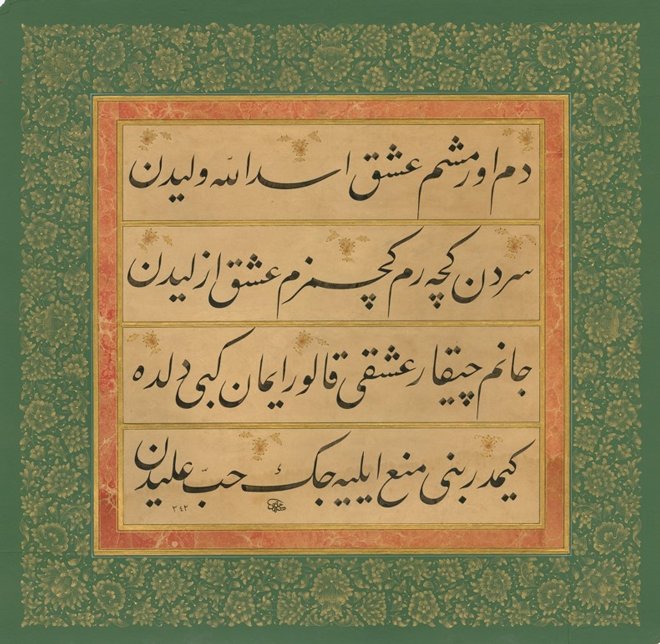 دم اورمشم عشق اسد الله وليدن
سردن كچه رم كچمزم عشق ازليدن
جانم چيقار عشقى قالور ايمان كبى دلده
كيمدر بنى منع ايليه جك حبّ عليدن
٣٤٢